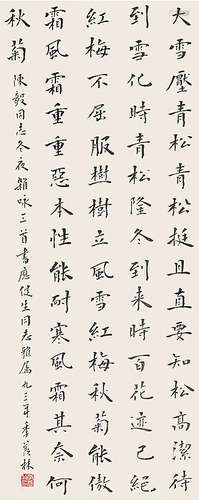 大雪壓青松青松挺且直要知松高潔待
到雪化時青松隆冬到來時百花迹已絕
紅梅不屈服樹樹立風雪紅梅秋菊能傲
霜風霜重重惡本性能耐寒風霜其奈何
秋菊 陳毅同志冬夜雜咏三首書應健生同志雅屬九三年林